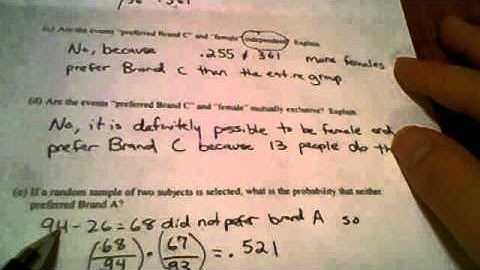 (c) Are the events "preferred Brand C" and "female" independent? Explain.
No, because .255 ≠ .361 more females
prefer Brand C than the entire group.
(d) Are the events "preferred Brand C" and "female" mutually exclusive? Explain.
No, it is definitely possible to be female and
prefer Brand C because 13 people do th
(e) If a random sample of two subjects is selected, what is the probability that neither
preferred Brand A?
94 - 26 = 68 did not prefer brand A so
(68/94) • (67/93) = .521